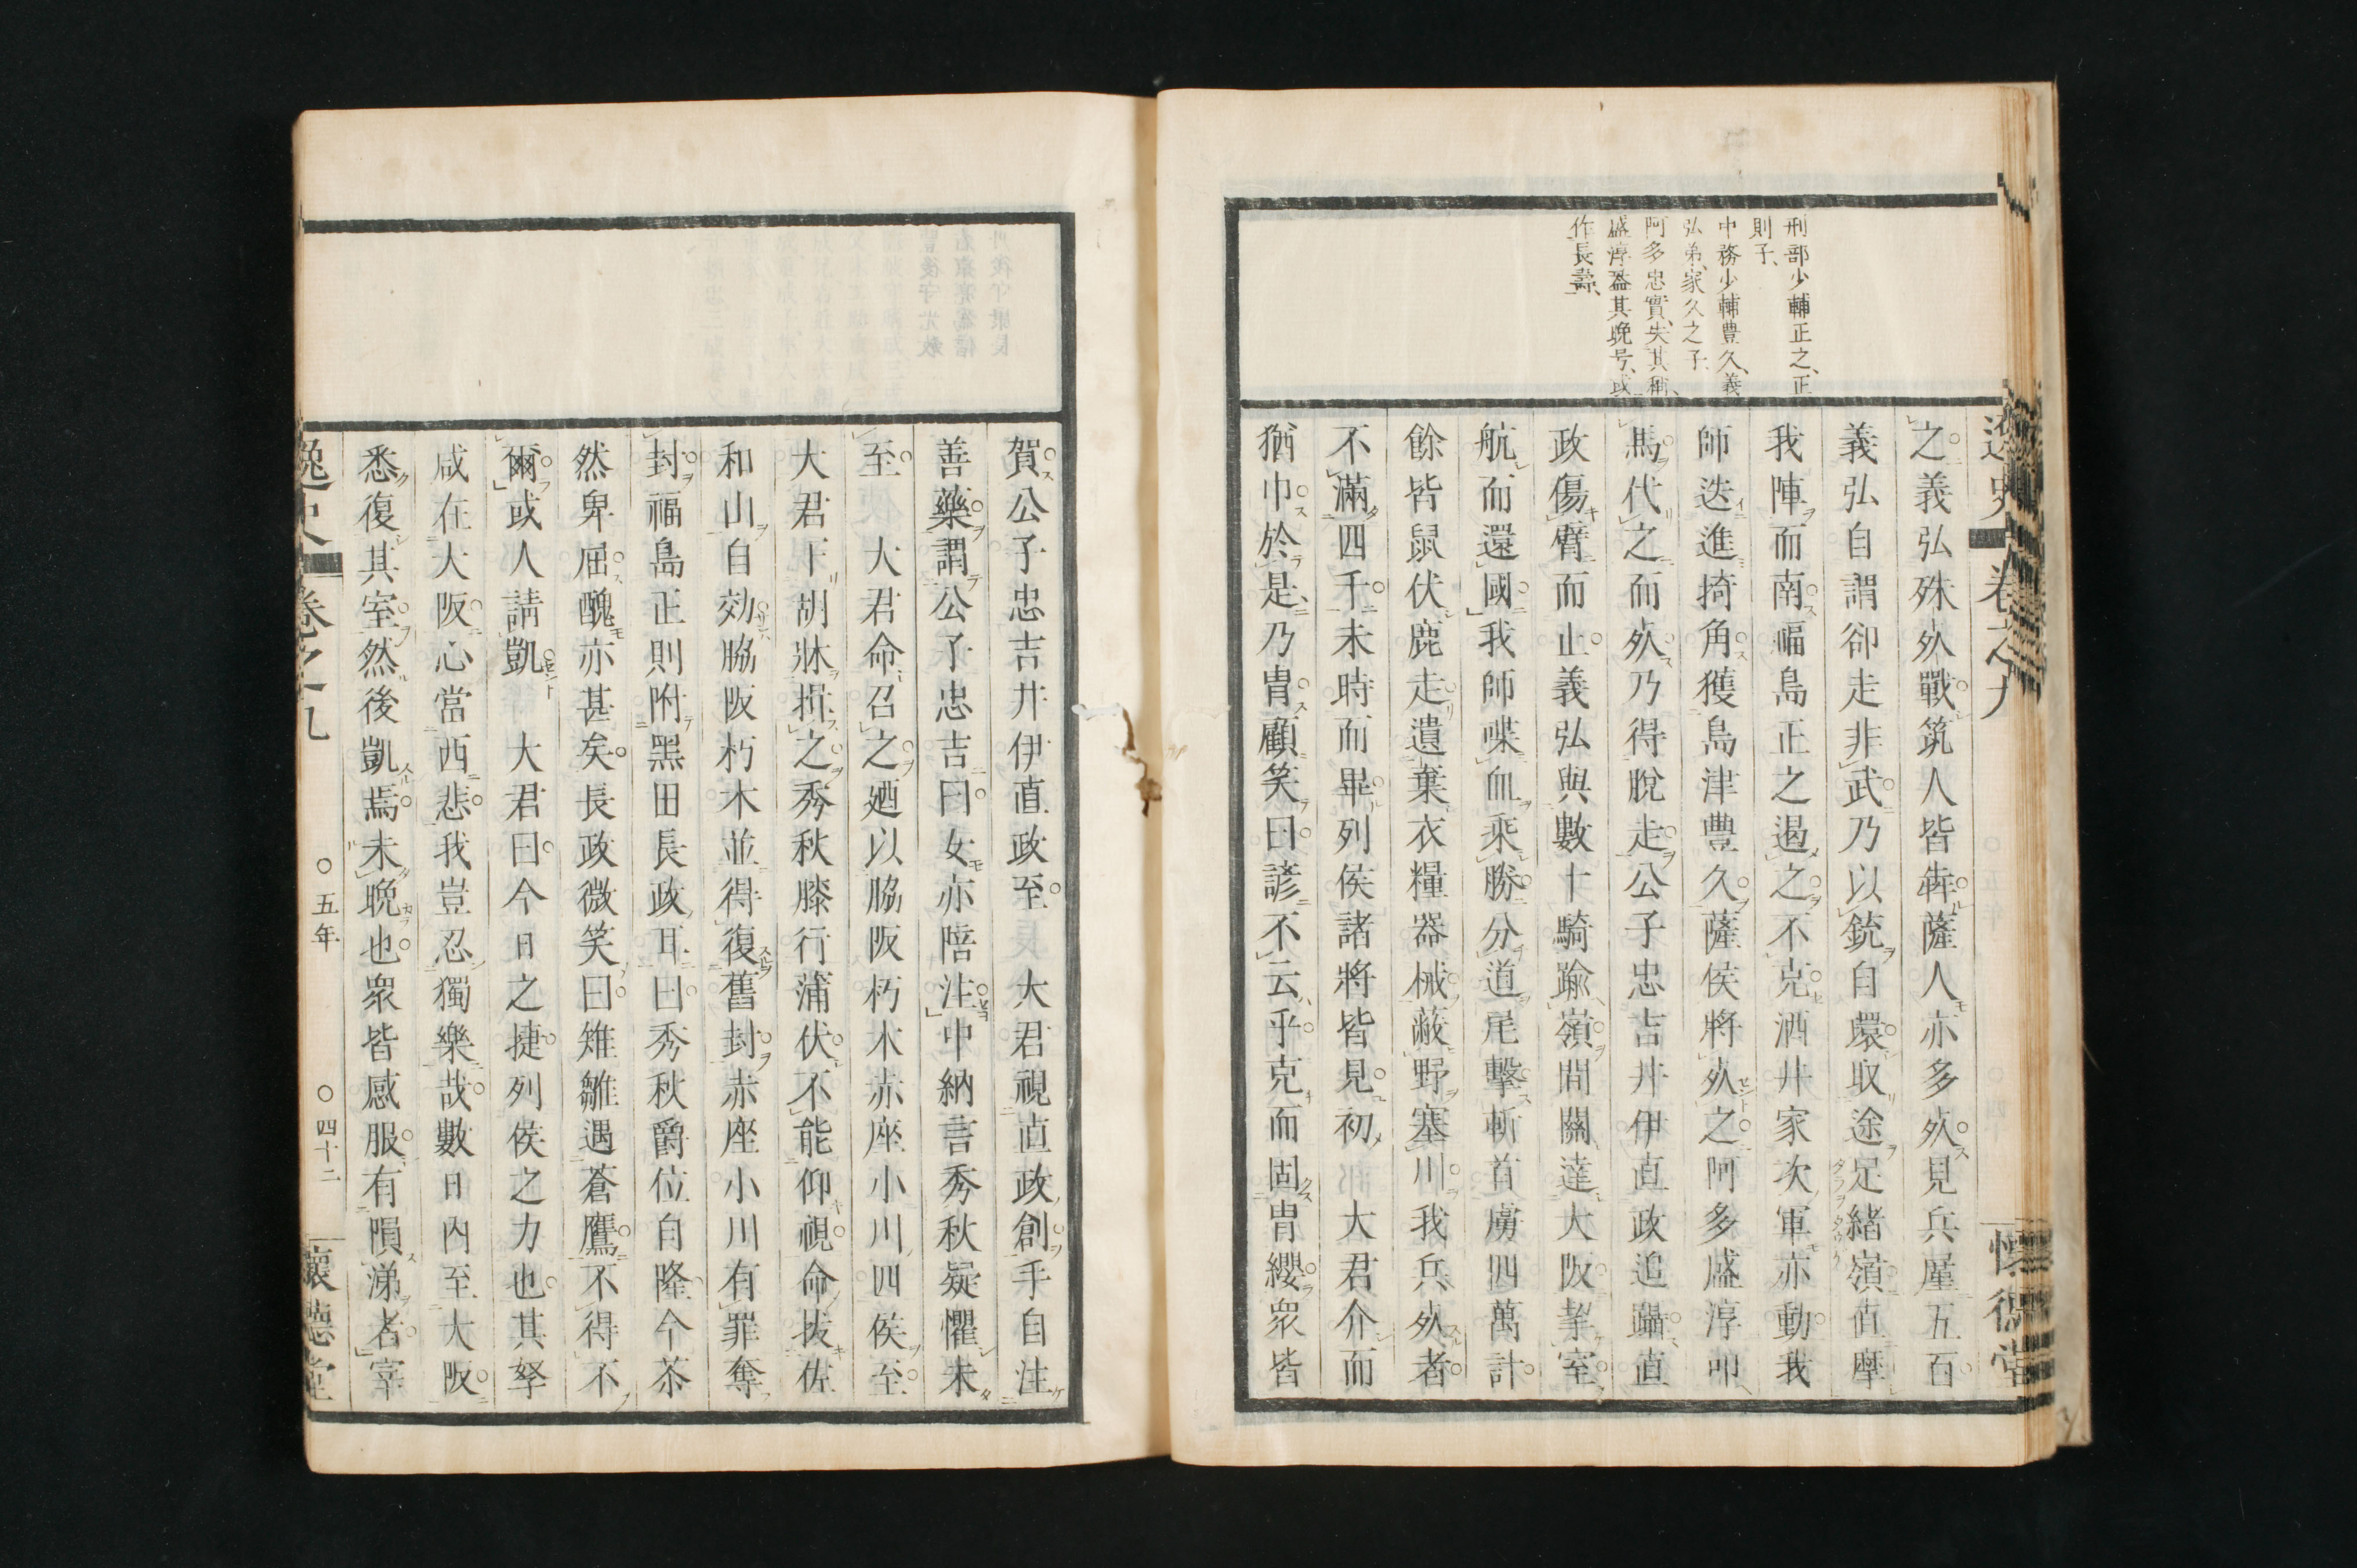 刑部少輔正之、正
則子、
中務少輔豊久、義
弘弟、家久之子、
阿多忠實、失其稱、
盛淳蓋其晩号、或
作長壽、
逸史 卷之九 懷德堂
之義弘殊死戰筑人皆犇薩人亦多死見兵厪五百
義弘自謂卻走非武乃以銃自環取途足緒嶺直摩
我陣而南福島正之遏之不克洒井家次軍亦動我
師迭進掎角獲島津豊久薩侯將死之阿多盛淳叩
馬代之而死乃得脫走公子忠吉井伊直政追躡直
政傷臂而止義弘與數十騎踰嶺間關達大阪挈室
航而還國我師喋血乘勝分道尾擊斬首虜四萬計
餘皆鼠伏鹿走遺棄衣糧器械蔽野塞川我兵死者
不滿四千未時而畢列侯諸將皆見初 大君介而
猶巾於是乃冑顧笑曰諺不云乎克而固冑纓衆皆
賀公子忠吉井伊直政至 大君視直政創手自注
善藥謂公子忠吉曰女亦陪注中納言秀秋疑懼未
至 大君命召之廼以脇阪朽木赤座小川四侯至
大君下胡牀揖之秀秋膝行蒲伏不能仰視命拔佐
和山自効脇阪朽木並得復舊封赤座小川有罪奪
封福島正則附黑田長政耳曰秀秋爵位自隆今茶
然卑屈醜亦甚矣長政微笑曰雉雛遇蒼鷹不得不
爾或人請凱 大君曰今日之捷列侯之力也其孥
咸在大阪心當西悲我豈忍獨樂哉數日內至大阪
悉復其室然後凱焉未晩也衆皆感服有隕涕者宰
逸史 卷之九 ○五年 ○四十二 懷德堂